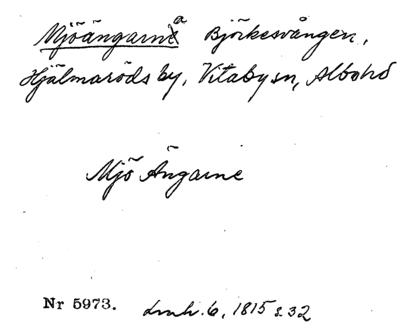 Mjöängarna Björkesvången,
Hjälmaröds by, Vitaby sn, Albo hd
Mjö Ängarne
Nr 5973. Lmh. 6, 1815 s. 32